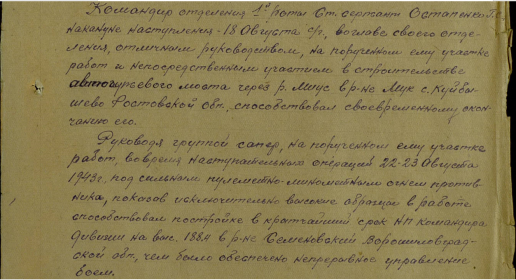 Командир отделения 1й роты Ст. сержант Остапенко Г.С.
накануне наступления - 18 Августа с/г, во главе своего отде-
ления, отличным руководством, на порученном ему участке
работ и непосредственным участием в строительстве
автогужевого моста через р. Миус в р-не с. Куйбы-
шево Ростовской обл., способствовал своевременному окон-
чанию его.
Руководя группой сапер, на порученном ему участке
работ, вовремя наступательных операций 22-23 Августа
1943г. под сильным пулеметно-минометным огнем против-
ника, показав исключительно высокие образцы в работе
способствовал постройке в кратчайший срок НП командира
дивизии на выс. 188,4 в р-не Семеновский Ворошиловград-
ской обл., чем было обеспечено непрерывное управление
боем.